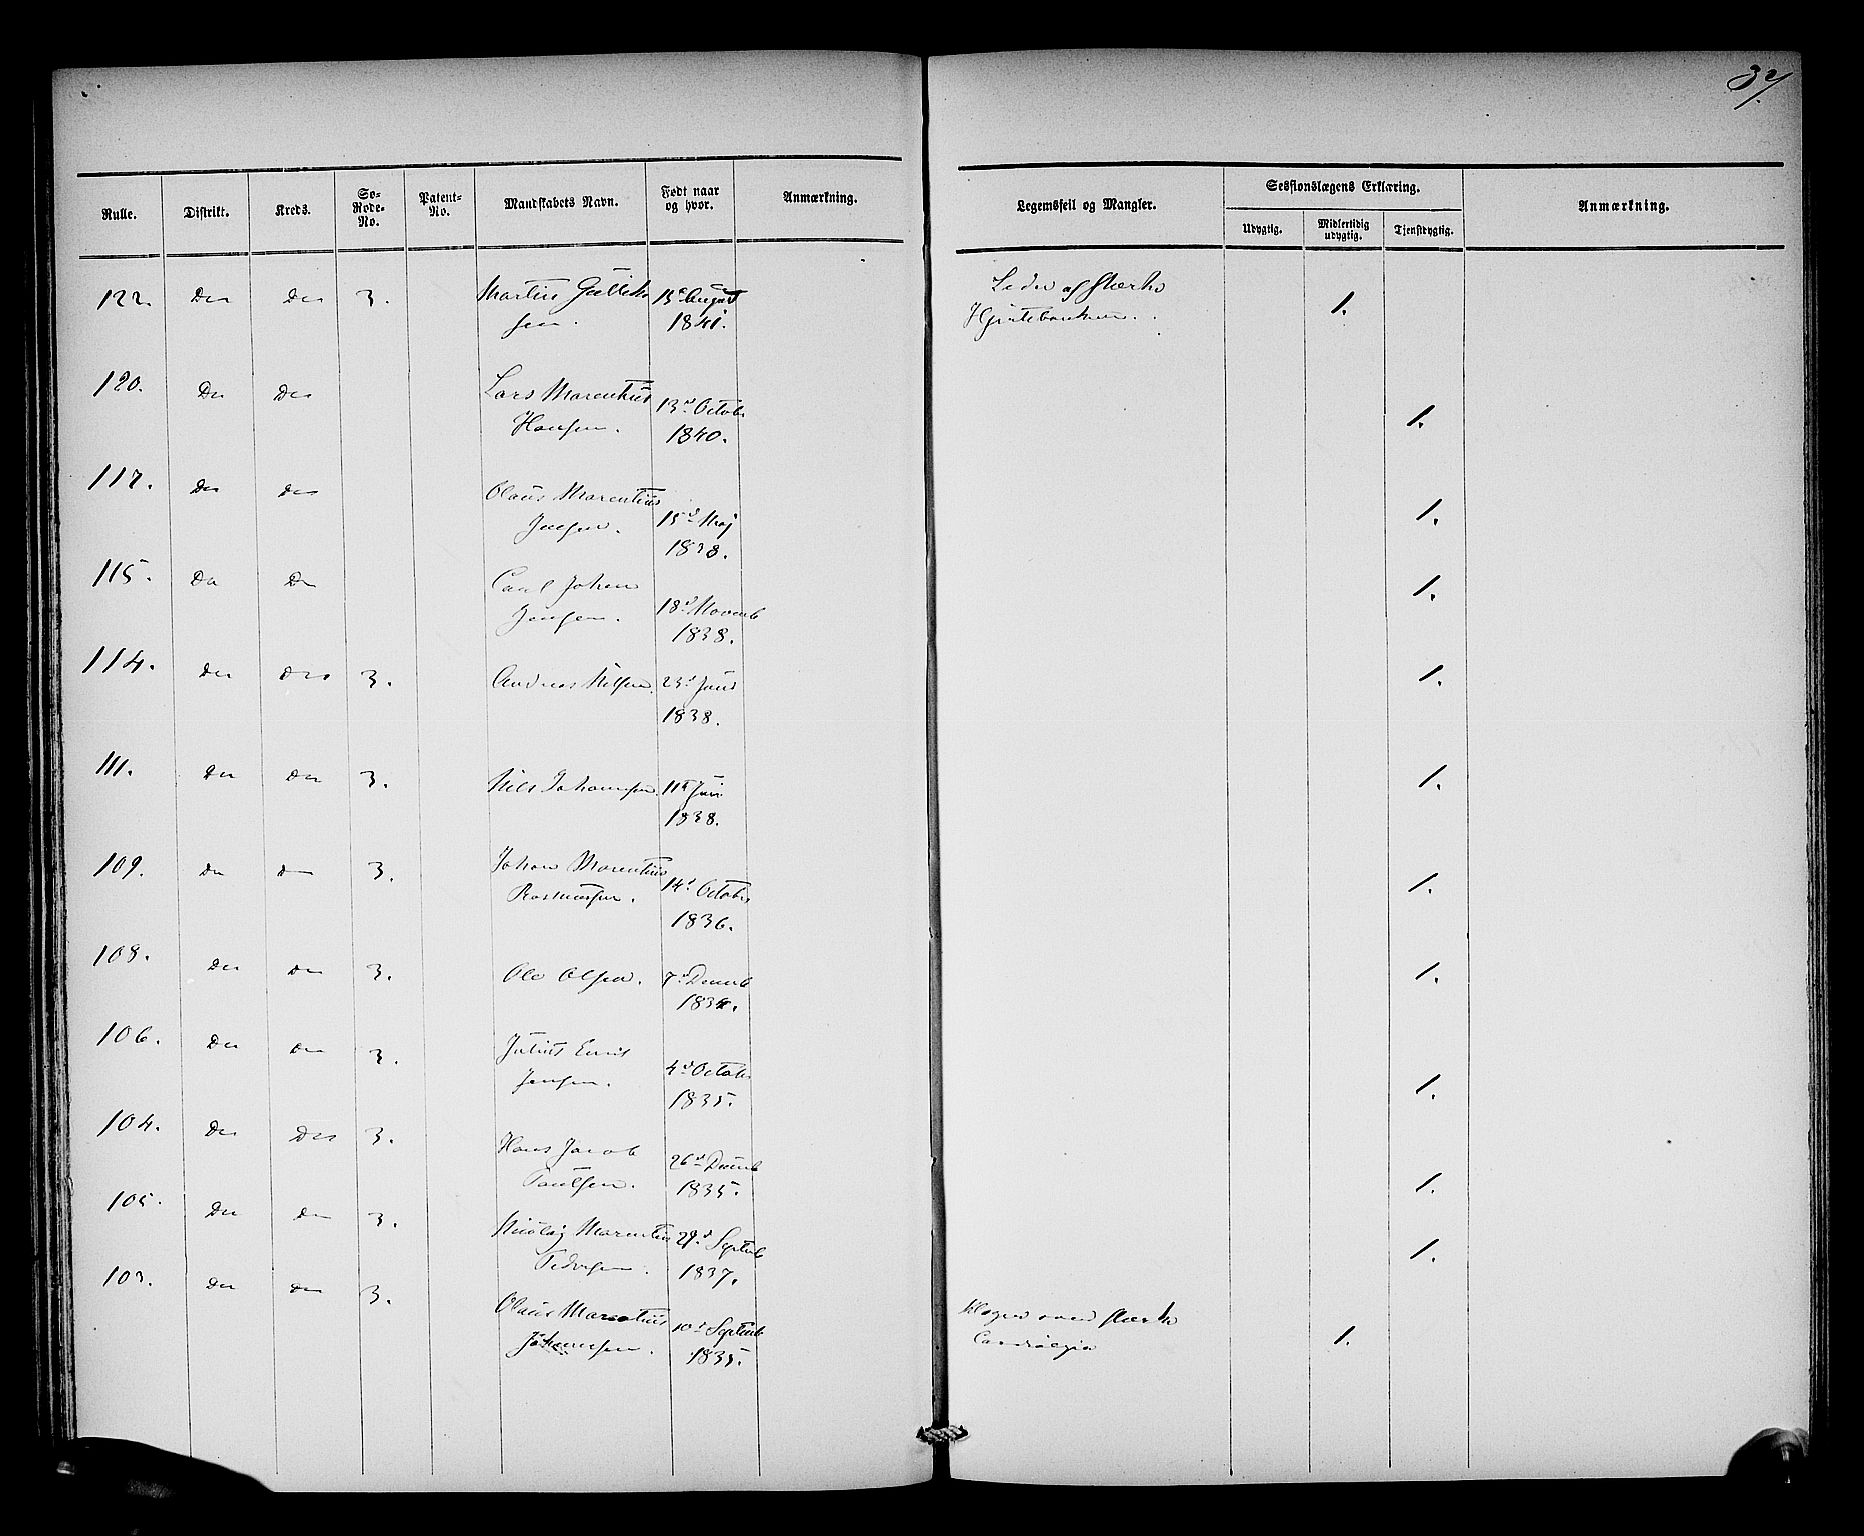 37.
Rulle. Distrikt. Kreds. So-Rode-No. Patent-No. Mandskabets Navn. Født naar og hvor. Anmærkning. Legemsfeil og Mangler. Sessionslægens Erklæring. Udygtig. Midlertidig udygtig. Tjenstdygtig. Anmærkning.
122. Do Do 3. Martin 15d August Lider af stærk
sen. 1841. Hjertebanken. 1.
120. Do Do Lars Marentius 13d Octobr
Hansen. 1840. 1.
117. Do Do Olaus Marentius
Jensen. 15d Maj 1.
1838.
115. Do Do Carl Johan 1.
Jensen. 18d Novemb
1838.
114. Do Do 3. Andreas Nilsen. 23d Juni 1.
1838.
111. Do Do 3. Nils Johannsen. 11te Juni 1.
1838.
109. Do Do 3. Johan Marentius 14d Octobr 1.
Rasmussen. 1836.
108. Do Do 3. Ole Olsen. 7d Decemb 1.
1834.
106. Do Do 3. Julius Emil 4d Octobr
Jensen. 1835. 1.
104. Do Do 3. Hans Jacob 26d Decemb
Paulsen. 1835. 1.
105. Do Do 3. Nicolaj Marentius 29d Septemb 1.
Pedersen. 1837.
103. Do Do 3. Olaus Marentius 10d Septemb Klager over stærk
Johannsen. 1835. Cardialgia 1.